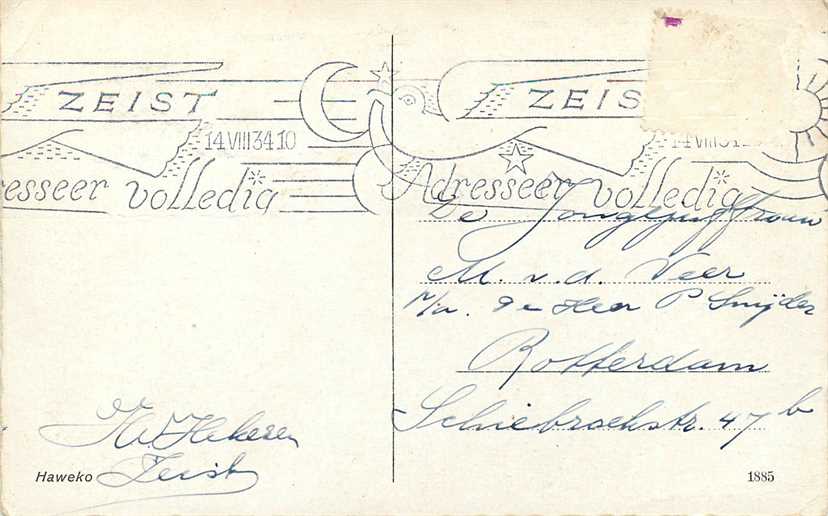 ZEIST
14 VIII 34 10
resseer volledig
ZEIS
14 VIII 3
Adresseer volledig
De Jongejuffrouw
M. v. d. Veer
p/a. de Heer P Snijder
Rotterdam
Schiebroekstr. 47 b
Zeist
Haweko
1885